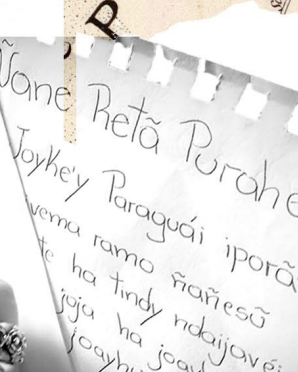 P
Ñane Retã Purahe
Joyke'y Paraguái iporã
vema ramo ñañesũ
te ha tindy ndaijavéi
joja ha